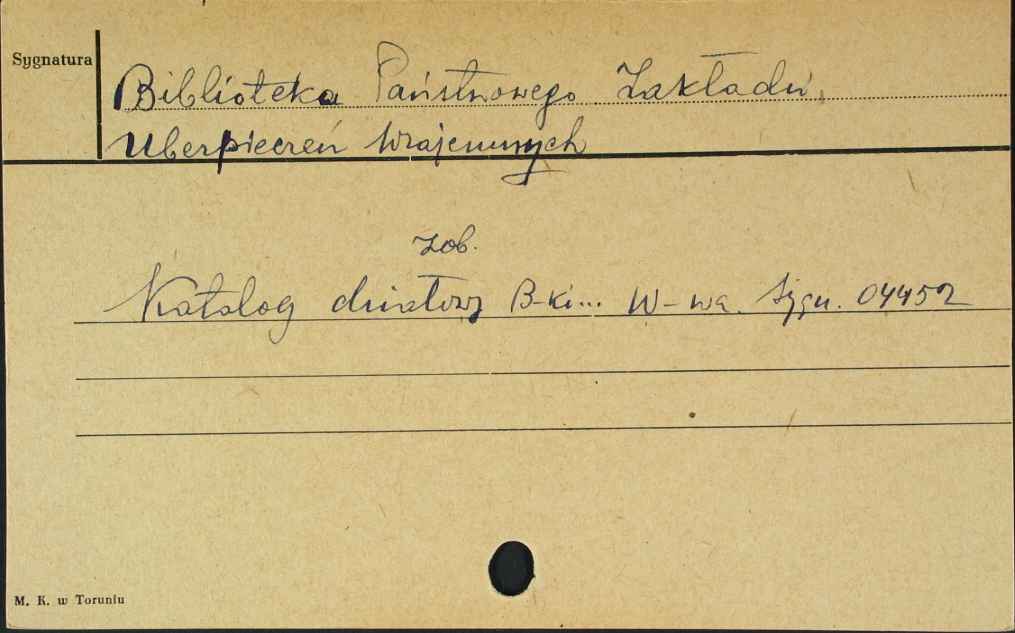 Sygnatura
Biblioteka Państwowego Zakładu
Ubezpieczeń Wzajemnych
Zob.
Katalog działowy B-ki... W-wa. Sygn. 04452
M. K. w Toruniu